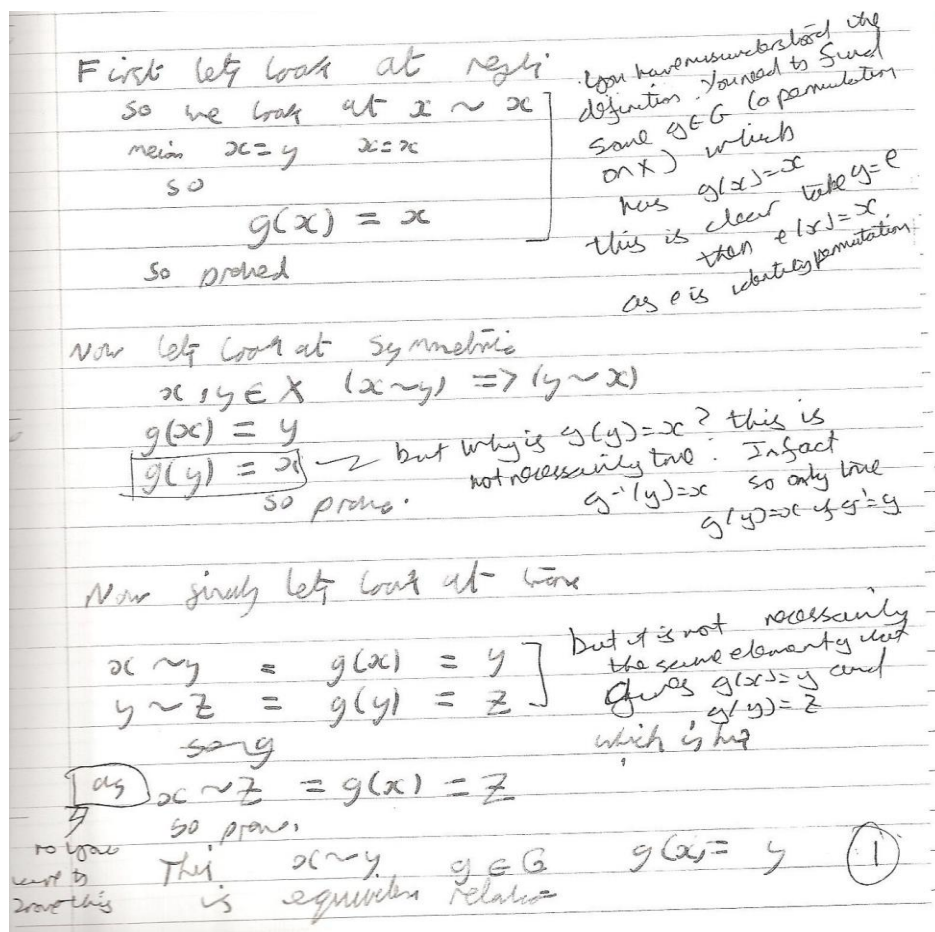 First lets look at
so we look at x ~ x
x = y x = x
so
g(x) = x
so proved
you have misunderstood the
definition. You need to find
some g∈G (a permutation
on X) which
has g(x)=x
this is clear take g=e
then e(x)=x
as e is identity permutation.
Now lets look at symmetric
x, y ∈ X (x~y) => (y~x)
g(x) = y
g(y) = x
so prove.
but why is g(y)=x? this is
not necessarily true. In fact
g⁻¹(y)=x so only true
g(y)=x if g⁻¹=g
Now finally lets look at
x ~y = g(x) = y
y ~ z = g(y) = z
so g
as x ~ z = g(x) = z
so prove.
but it is not necessarily
the same element g that
gives g(x)=y and
g(y)=z
which is
no you
have to
prove this
This x~y g ∈ G g(x) = y 1
is equivalen relation